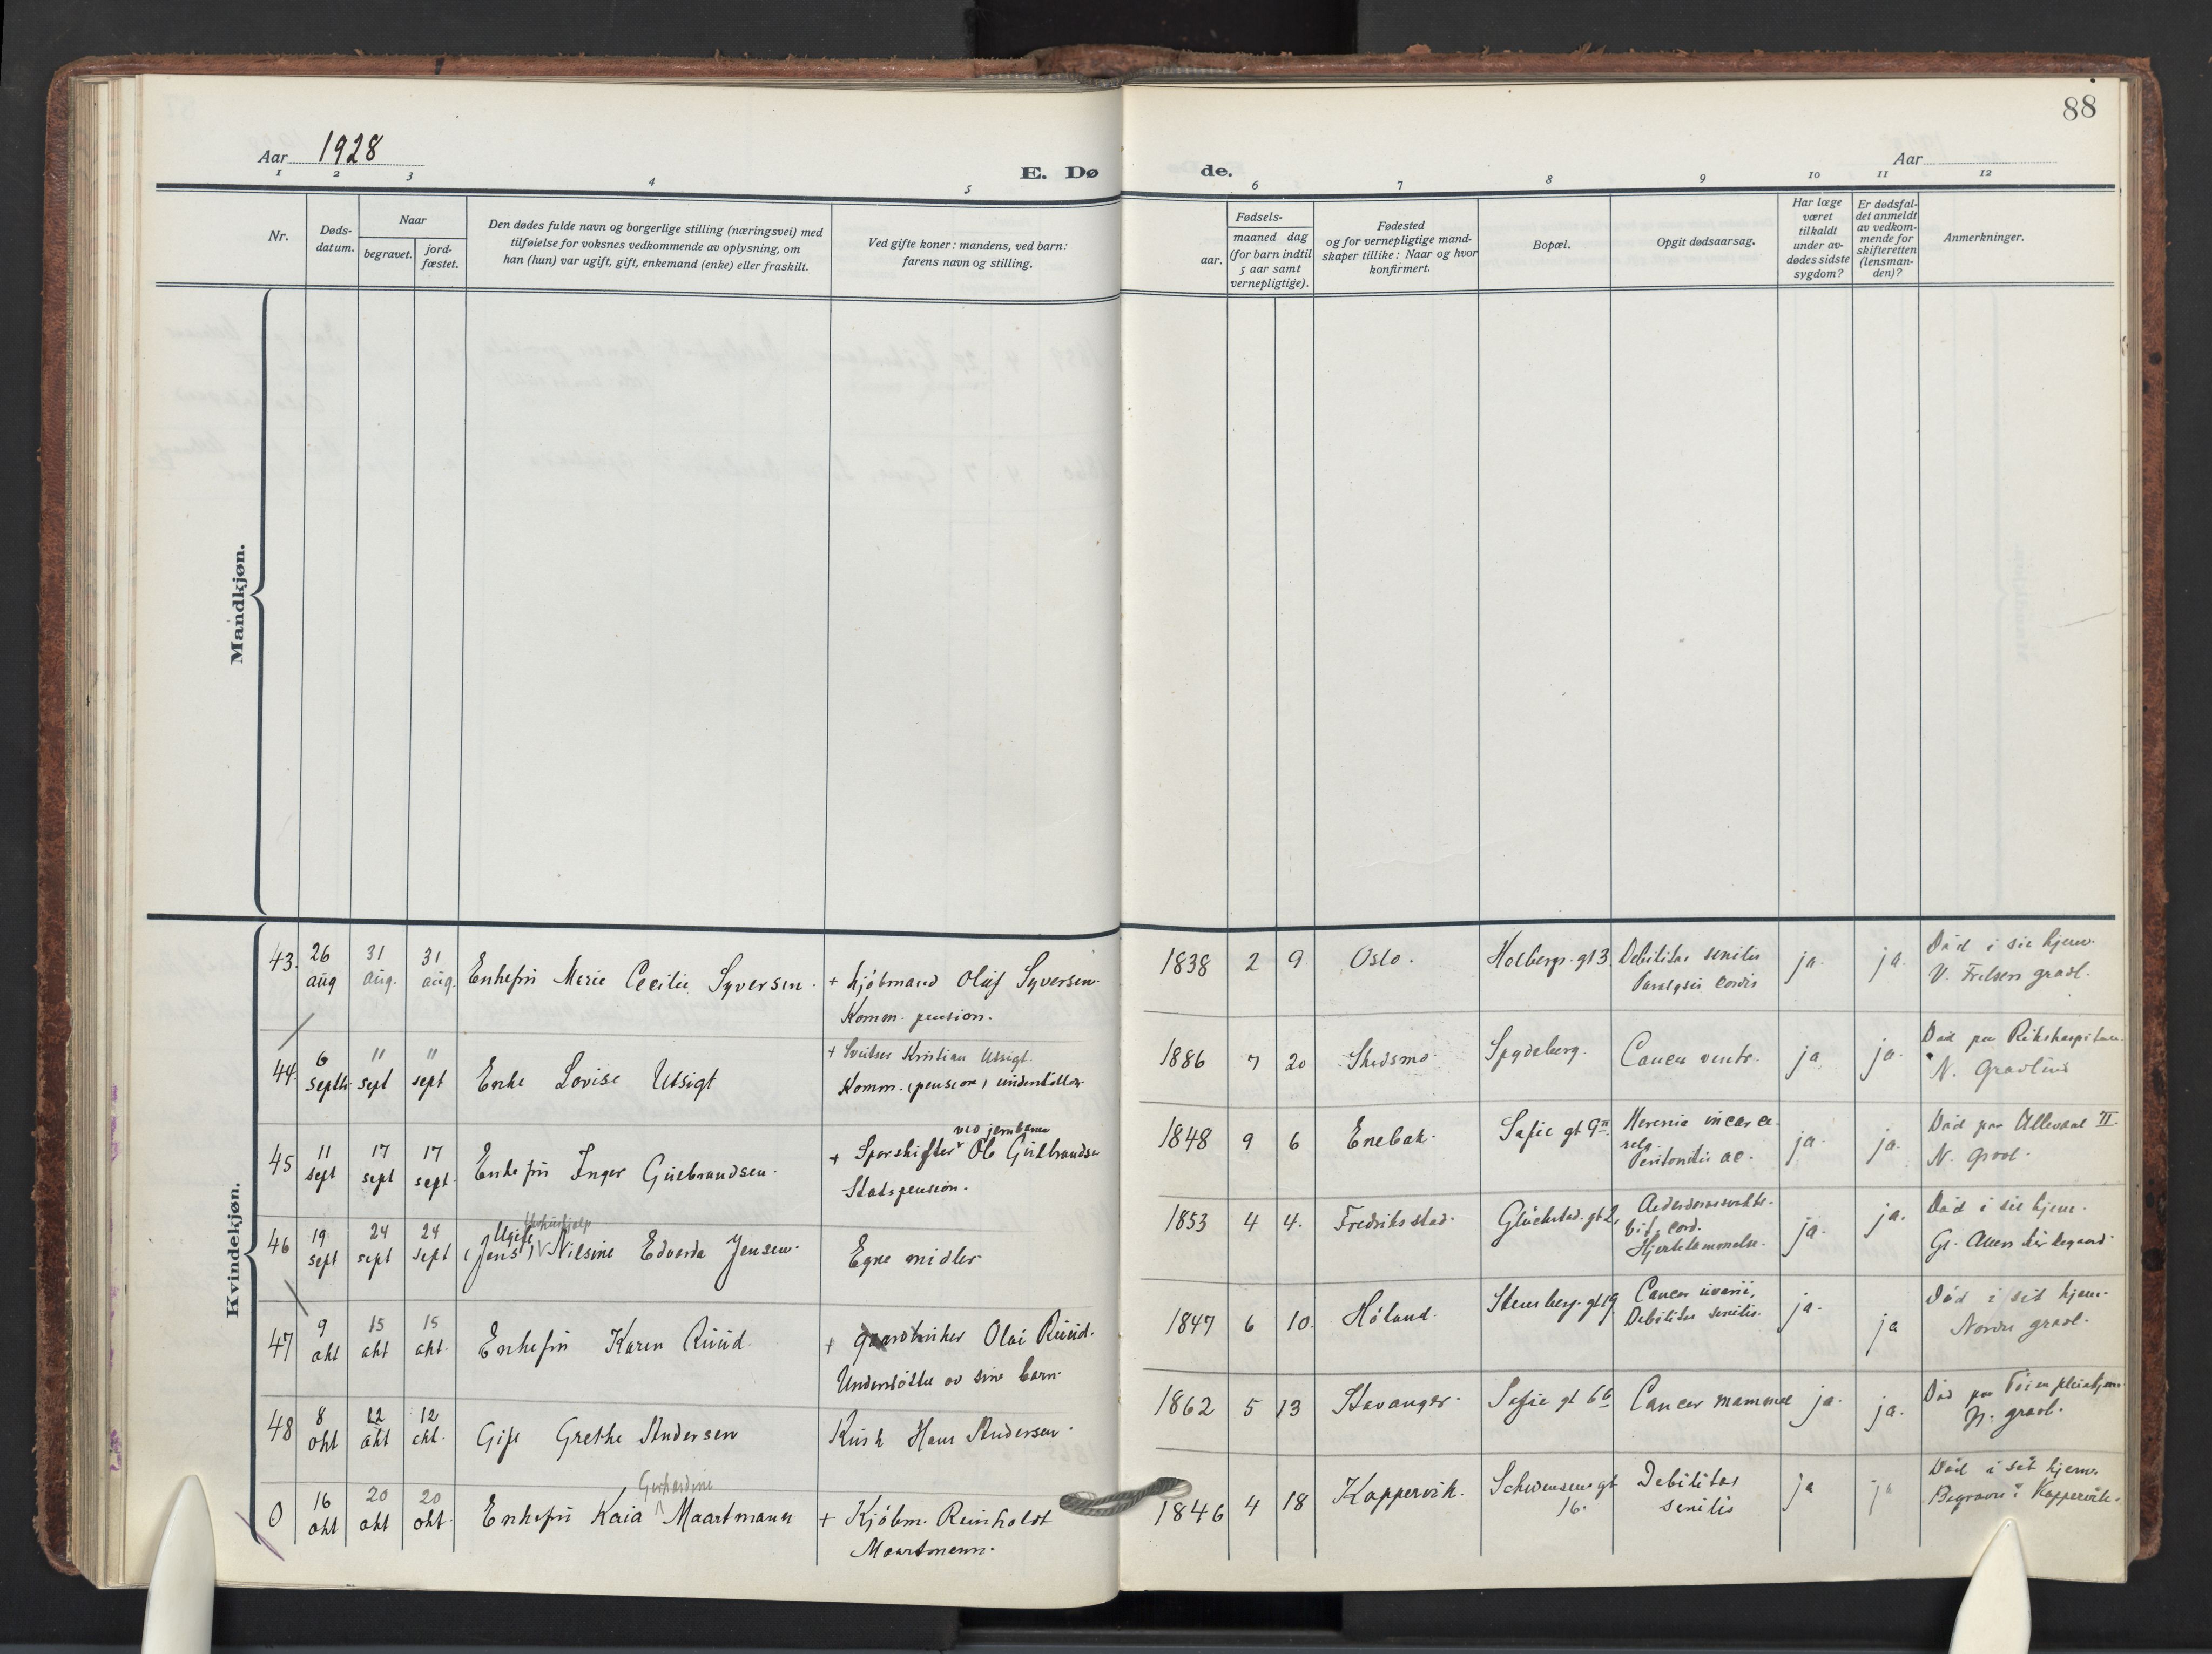 88
Aar 1928
E. Dø de.
Aar
1 2 3 4 5 6 7 8 9 10 11 12
Nr.
Døds-
datum.
Naar
begravet.
jord-
fæstet.
Den dødes fulde navn og borgerlige stilling (næringsvei) med
tilføielse for voksnes vedkommende av oplysning, om
han (hun) var ugift, gift, enkemand (enke) eller fraskilt.
Ved gifte koner: mandens, ved barn:
farens navn og stilling.
Fødsels-
aar.
maaned dag
(for barn indtil
5 aar samt
vernepligtige).
Fødested
og for vernepligtige mand-
skaper tillike: Naar og hvor
konfirmert.
Bopæl.
Opgit dødsaarsag.
Har læge
været
tilkaldt
under av-
dødes sidste
sygdom?
Er dødsfal-
det anmeldt
av vedkom-
mende for
skifteretten
(lensman-
den)?
Anmerkninger.
Mandkjøn.
Kvindekjøn.
43. 26 aug 31 aug. 31 aug. Enkefru Marie Cecilie Syversen. + Kjøbmand Oluf Syversen.
Komm. pension.
1838 2 9 Oslo. Holbergs. gt 3. Debilitas senilis
Paralysis cordis
ja. ja. Død i sit hjem.
V. Frelsers gravl.
44. 6 septb. 11 sept 11 sept Enke Lovise Utsigt + Kristian Utsigt.
Komm. (pension) understøttes.
1886 7 20 Skedsmo. Spydeberg. Cancer ventr. ja ja. Død paa Rikshospitalet.
N. Gravlund
45 11 sept 17 sept 17 sept. Enkefru Inger Gulbrandsen. + Sporskifter ved jernbanen Ole Gulbrandsen
Statspension.
1848 9 6 Enebak. Sofie gt 9 Hernia incar ce-
Peritonitis ac.
ja. ja. Død paa Ullevaal II.
N. Gravl.
46 19 sept 24 sept 24 sept Ugift
(Jens) Nilsine Edvarda Jensen. Egne midler
1853 4 4. Fredriksstad. Glückstad. gt 2. Alderdomssvakhet.
Vit. cord.
Hjertelammelse.
ja. ja. Død i sit hjem.
Gr. Akers kirkegaard
47 9 okt 15 okt 15 okt. Enkefru Karen Ruud. + Olai Ruud.
Understøttet av sine barn.
1847 6 10. Høland. Stensberg. gt 19 Cancer
Debilitas senilis.
ja. ja Død i sit hjem.
Nordre gravl.
48 8 okt 12 okt 12 okt. Gift Grethe Andersen Kusk Hans Andersen.
1862 5 13 Stavanger. Sofie gt 6 Cancer mammae ja. ja. Død paa Tøien pleiehjem.
N. gravl.
0 16 okt 20 okt 20 okt. Enkefru Kaia Gerhardine Maartmann + Kjøbm. Reinholdt
Maartmann.
1846 4 18 Koppervik. Schwensens gt
16.
Debilitas
senilis
ja ja Død i sit hjem.
Begravet i Koppervik.